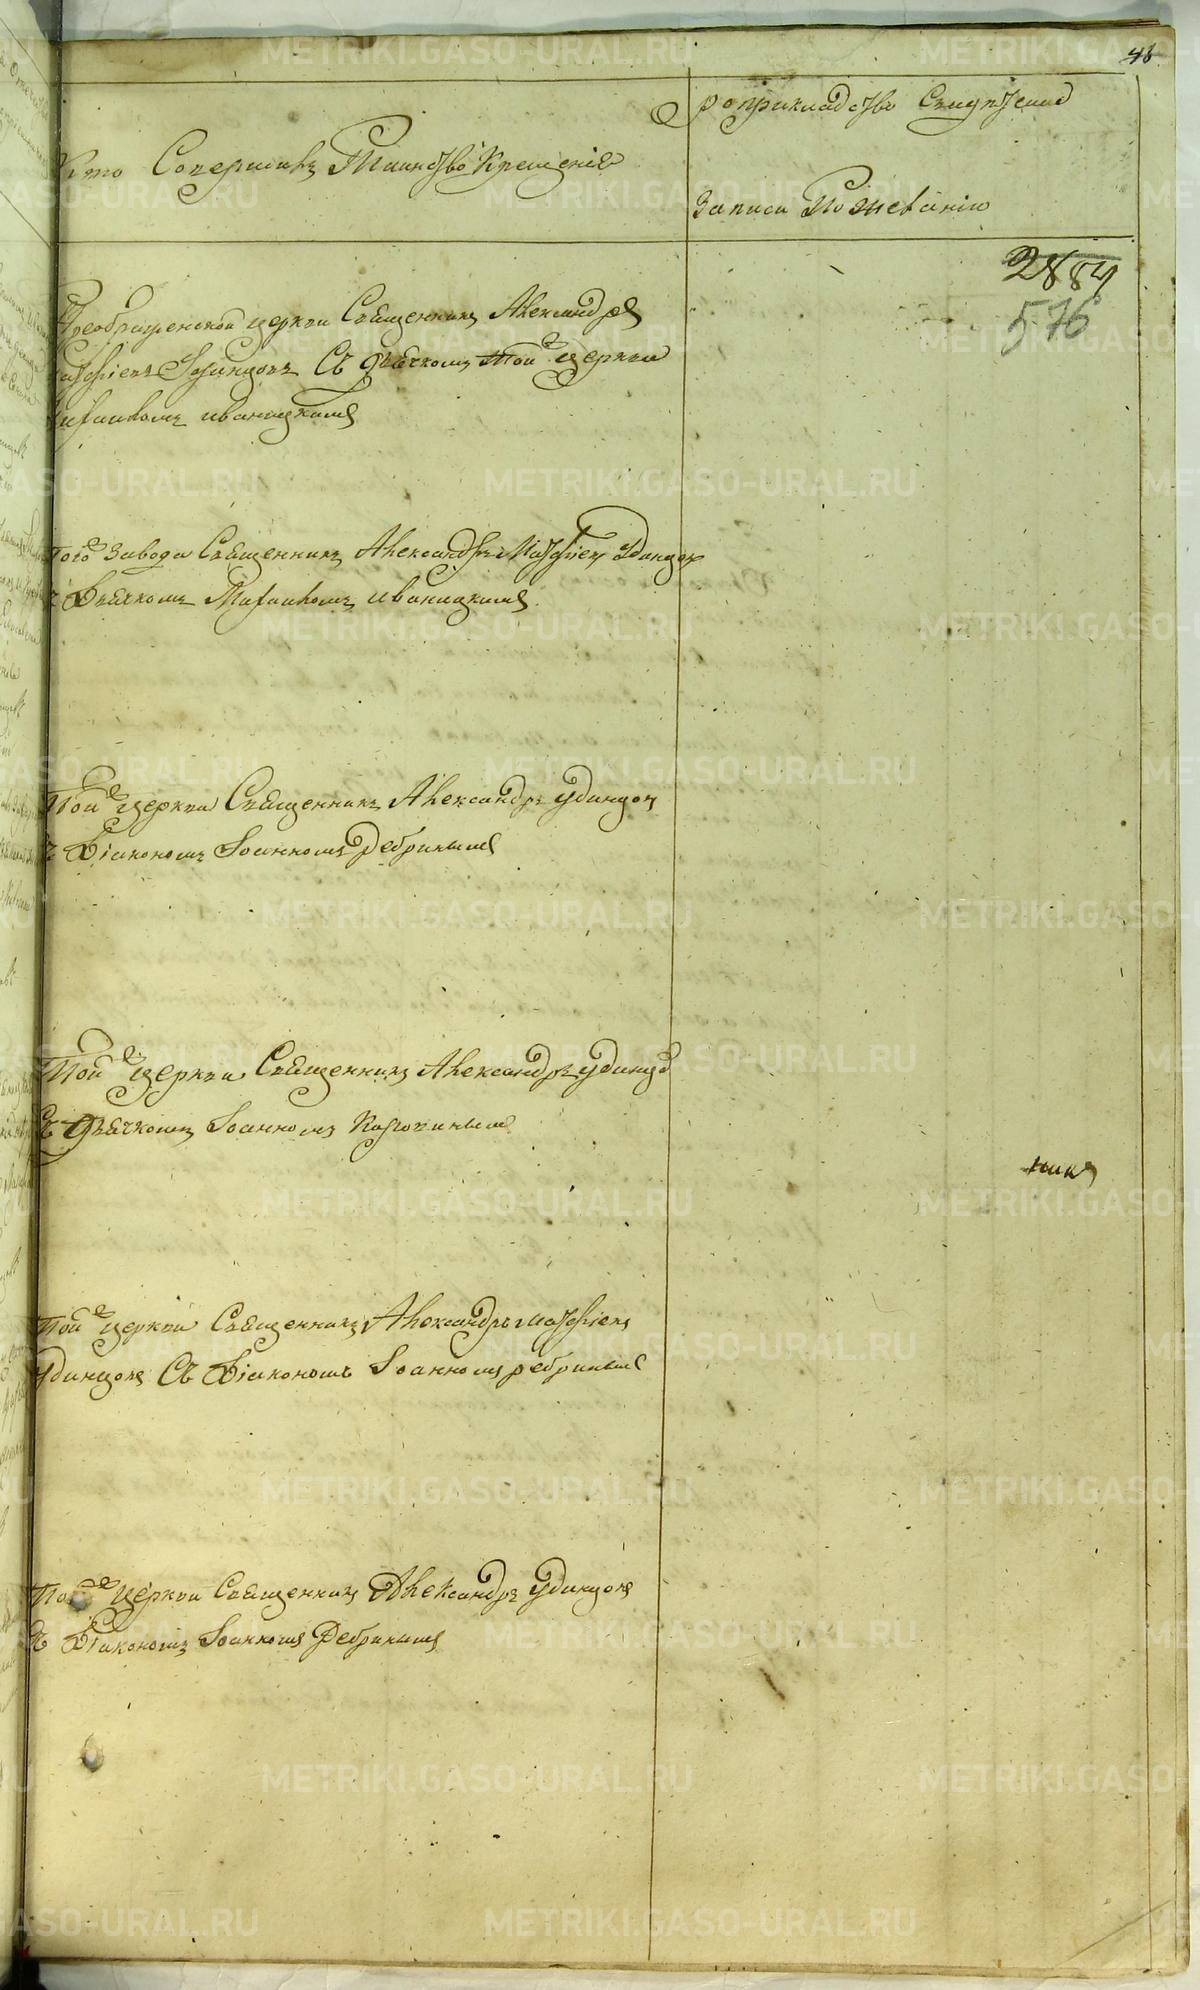 48
Кто Совершалъ Таинство Крещенія
Рукоприкладство Свидѣтелей
Записи По желанію
2884
576
Преображенской церкви Священникъ Александръ
Матфіевъ Удинцовъ Съ дьячкомъ той же церкви
Иваницкимъ
того же Завода Священникъ Александръ Матфіевъ Удинцов
съ Дьячкомъ Михаиломъ Иваницкимъ
Той же церкви Священникъ Александръ Удинцовъ
съ Діакономъ Іоанномъ Ребринымъ
Той же церкви Священникъ Александръ Удинцов
съ дьячкомъ Іоанномъ
Той же церкви Священникъ Александръ Матфіевъ
Удинцовъ Съ Діакономъ Іоанномъ Ребринымъ
Той же церкви Священникъ Александръ Удинцовъ
съ Діакономъ Іоанномъ Ребринымъ
METRIKI.GASO-URAL.RU